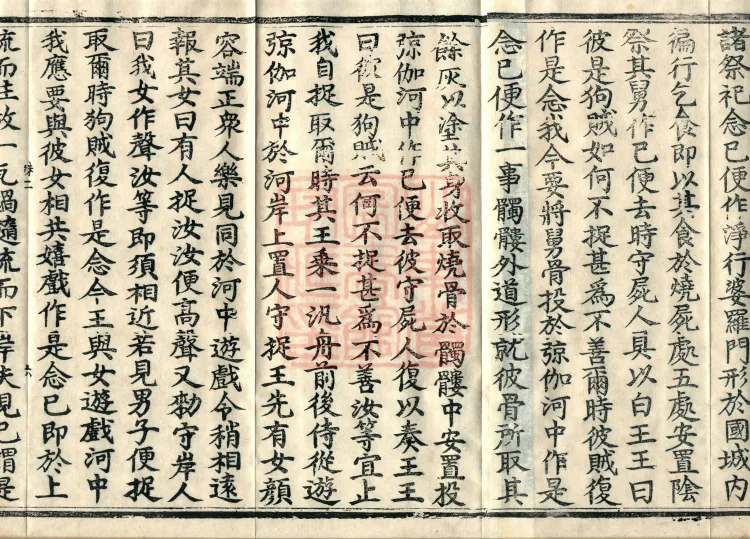 諸祭祀念已便作淨行婆羅門形於國城内
遍行乞食即以其食於燒屍處五處安置陰
祭其舅作已便去時守屍人具以白王王曰
彼是狗賊如何不捉甚為不善爾時彼賊復
作是念我今要將舅骨投於弶伽河中作是
念已便作一事髑髏外道形就彼骨所取其
餘灰以塗其身收取燒骨於髑髏中安置投
弶伽河中作已便去彼守屍人復以奏王王
曰欲是狗賊云何不捉甚為不善汝等宜止
我自捉取爾時其王乘一汎舟前後侍從遊
弶伽河中於河岸上置人守捉王先有女顏
容端正衆人樂見同於河中遊戲令稍相遠
報其女曰有人捉汝汝便高聲又勑守岸人
曰我女作聲汝等即須相近若見男子便捉
取爾時狗賊復作是念今王與女遊戲河中
我應要與彼女相共嬉戲作是念已即於上
流而住放一瓦鍋隨流而下岸夫見已謂是
卷二
六